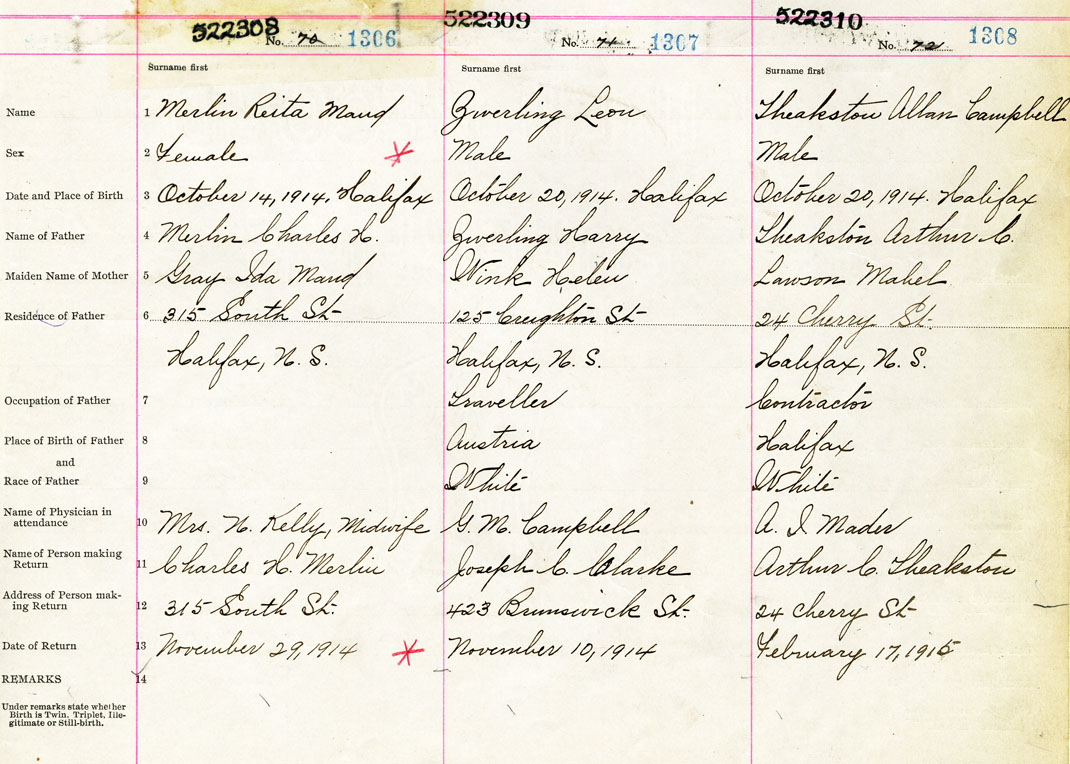 522308 522309 522310
No. 70 1306 No. 71 1307 No. 72 1308
Surname first Surname first Surname first
Name 1 Merlin Reita Maud Zwerling Leon Theakston Allan Campbell
Sex 2 Female Male Male
Date and Place of Birth 3 October 14, 1914. Halifax October 20, 1914. Halifax October 20, 1914. Halifax
Name of Father 4 Merlin Charles H. Zwerling Harry Theakston Arthur C.
Maiden Name of Mother 5 Gray Ida Maud Wink Helen Lawson Mabel
Residence of Father 6 315 South St. 125 Creighton St. 24 Cherry St.
Halifax, N. S. Halifax, N. S. Halifax, N. S.
Occupation of Father 7 Traveller Contractor
Place of Birth of Father 8 Austria Halifax
and
Race of Father 9 White White
Name of Physician in
attendance 10 Mrs. N. Kelly, Midwife G. M. Campbell A. I. Mader
Name of Person making
Return 11 Charles H. Merlin Joseph C. Clarke Arthur C. Theakston
Address of Person mak-
ing Return 12 315 South St. 423 Brunswick St. 24 Cherry St
Date of Return 13 November 29, 1914 November 10, 1914 February 17, 1915
REMARKS 14
Under remarks state whether
Birth is Twin. Triplet, Ille-
gitimate or Still-birth.